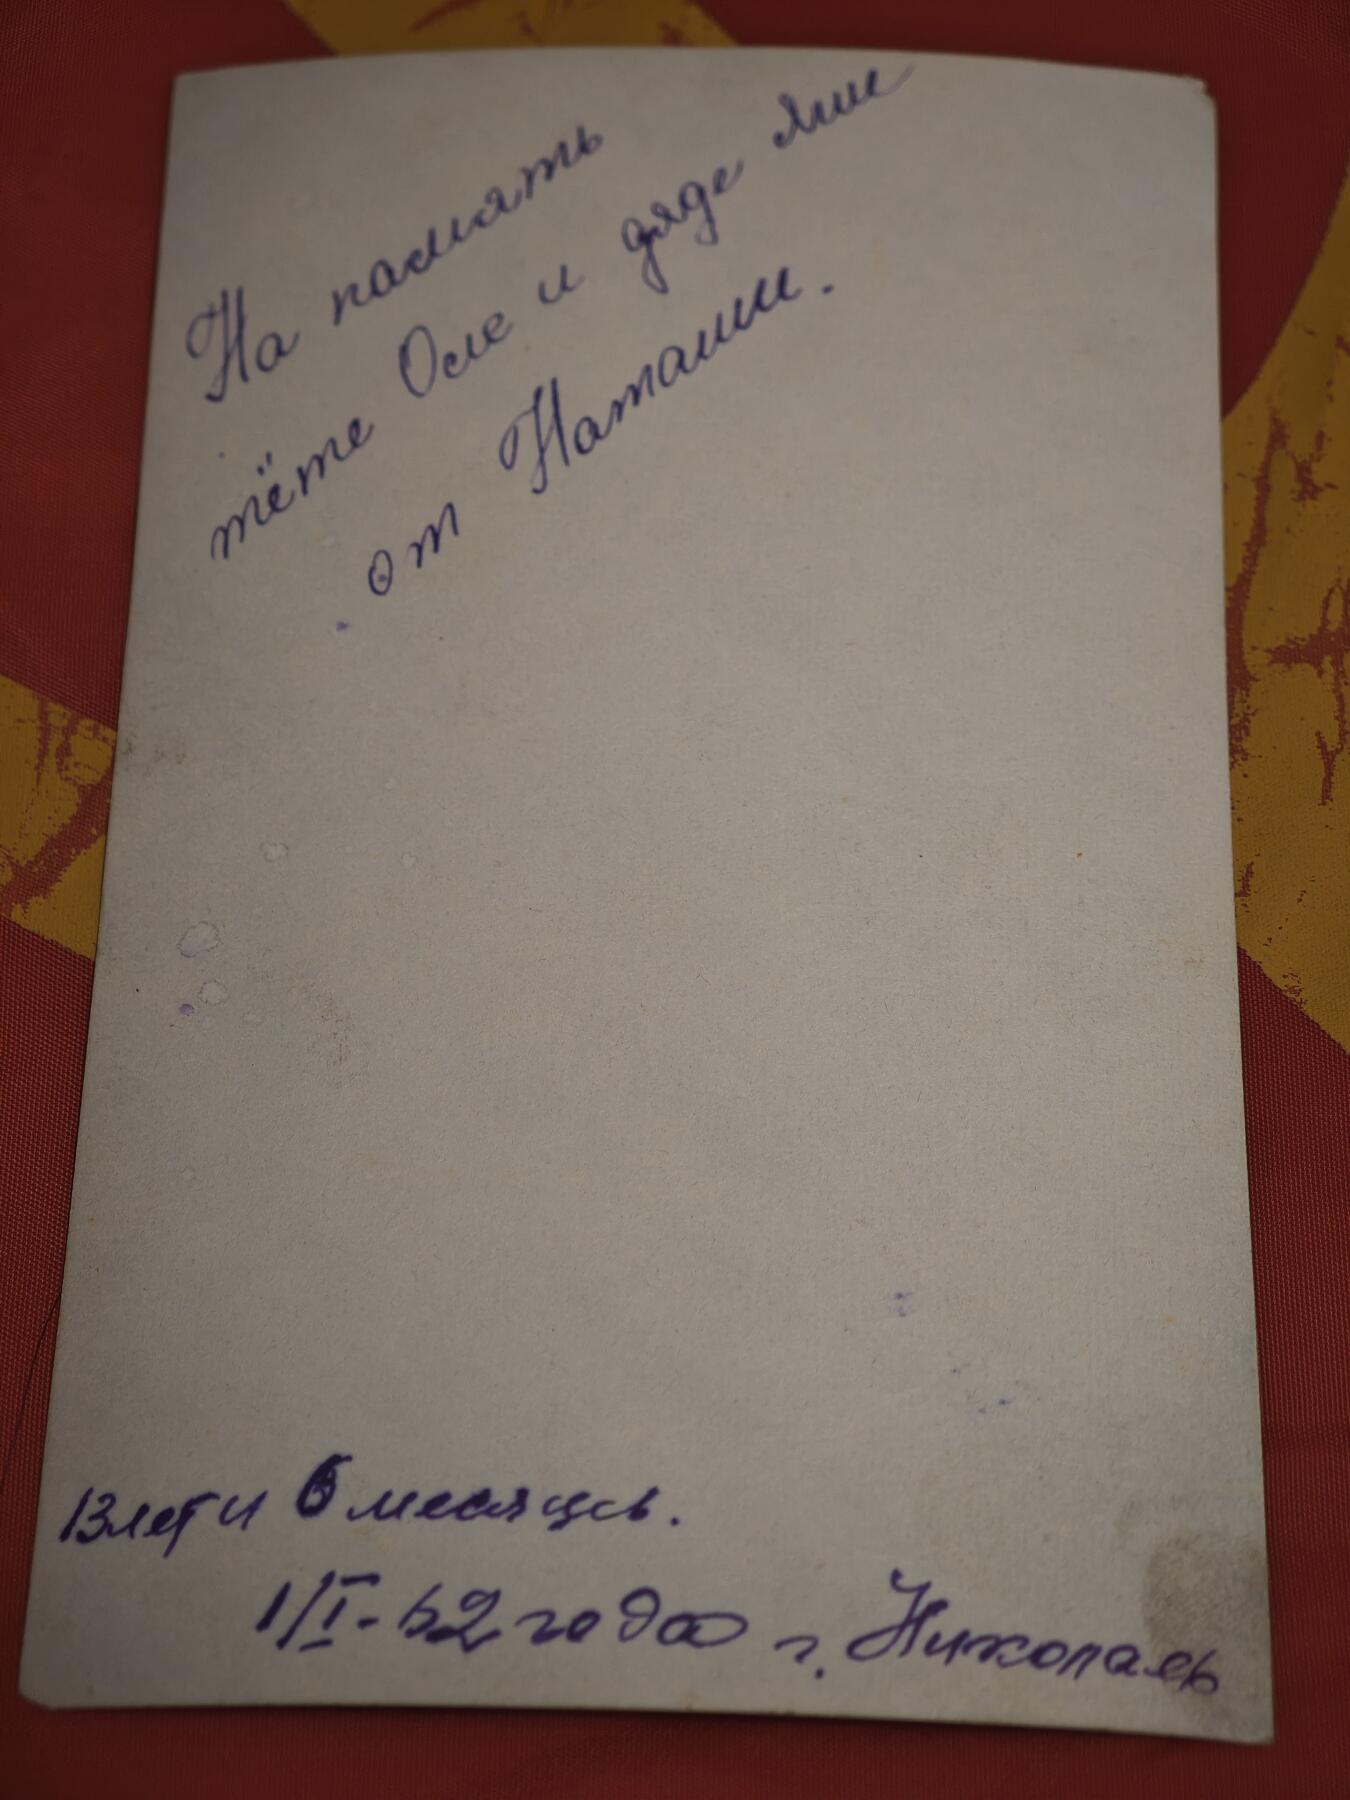 На память
тёте Оле и дяде яши
от Наташи.
13 лет и 6 месяцев.
1/I-62 года г. Николаев